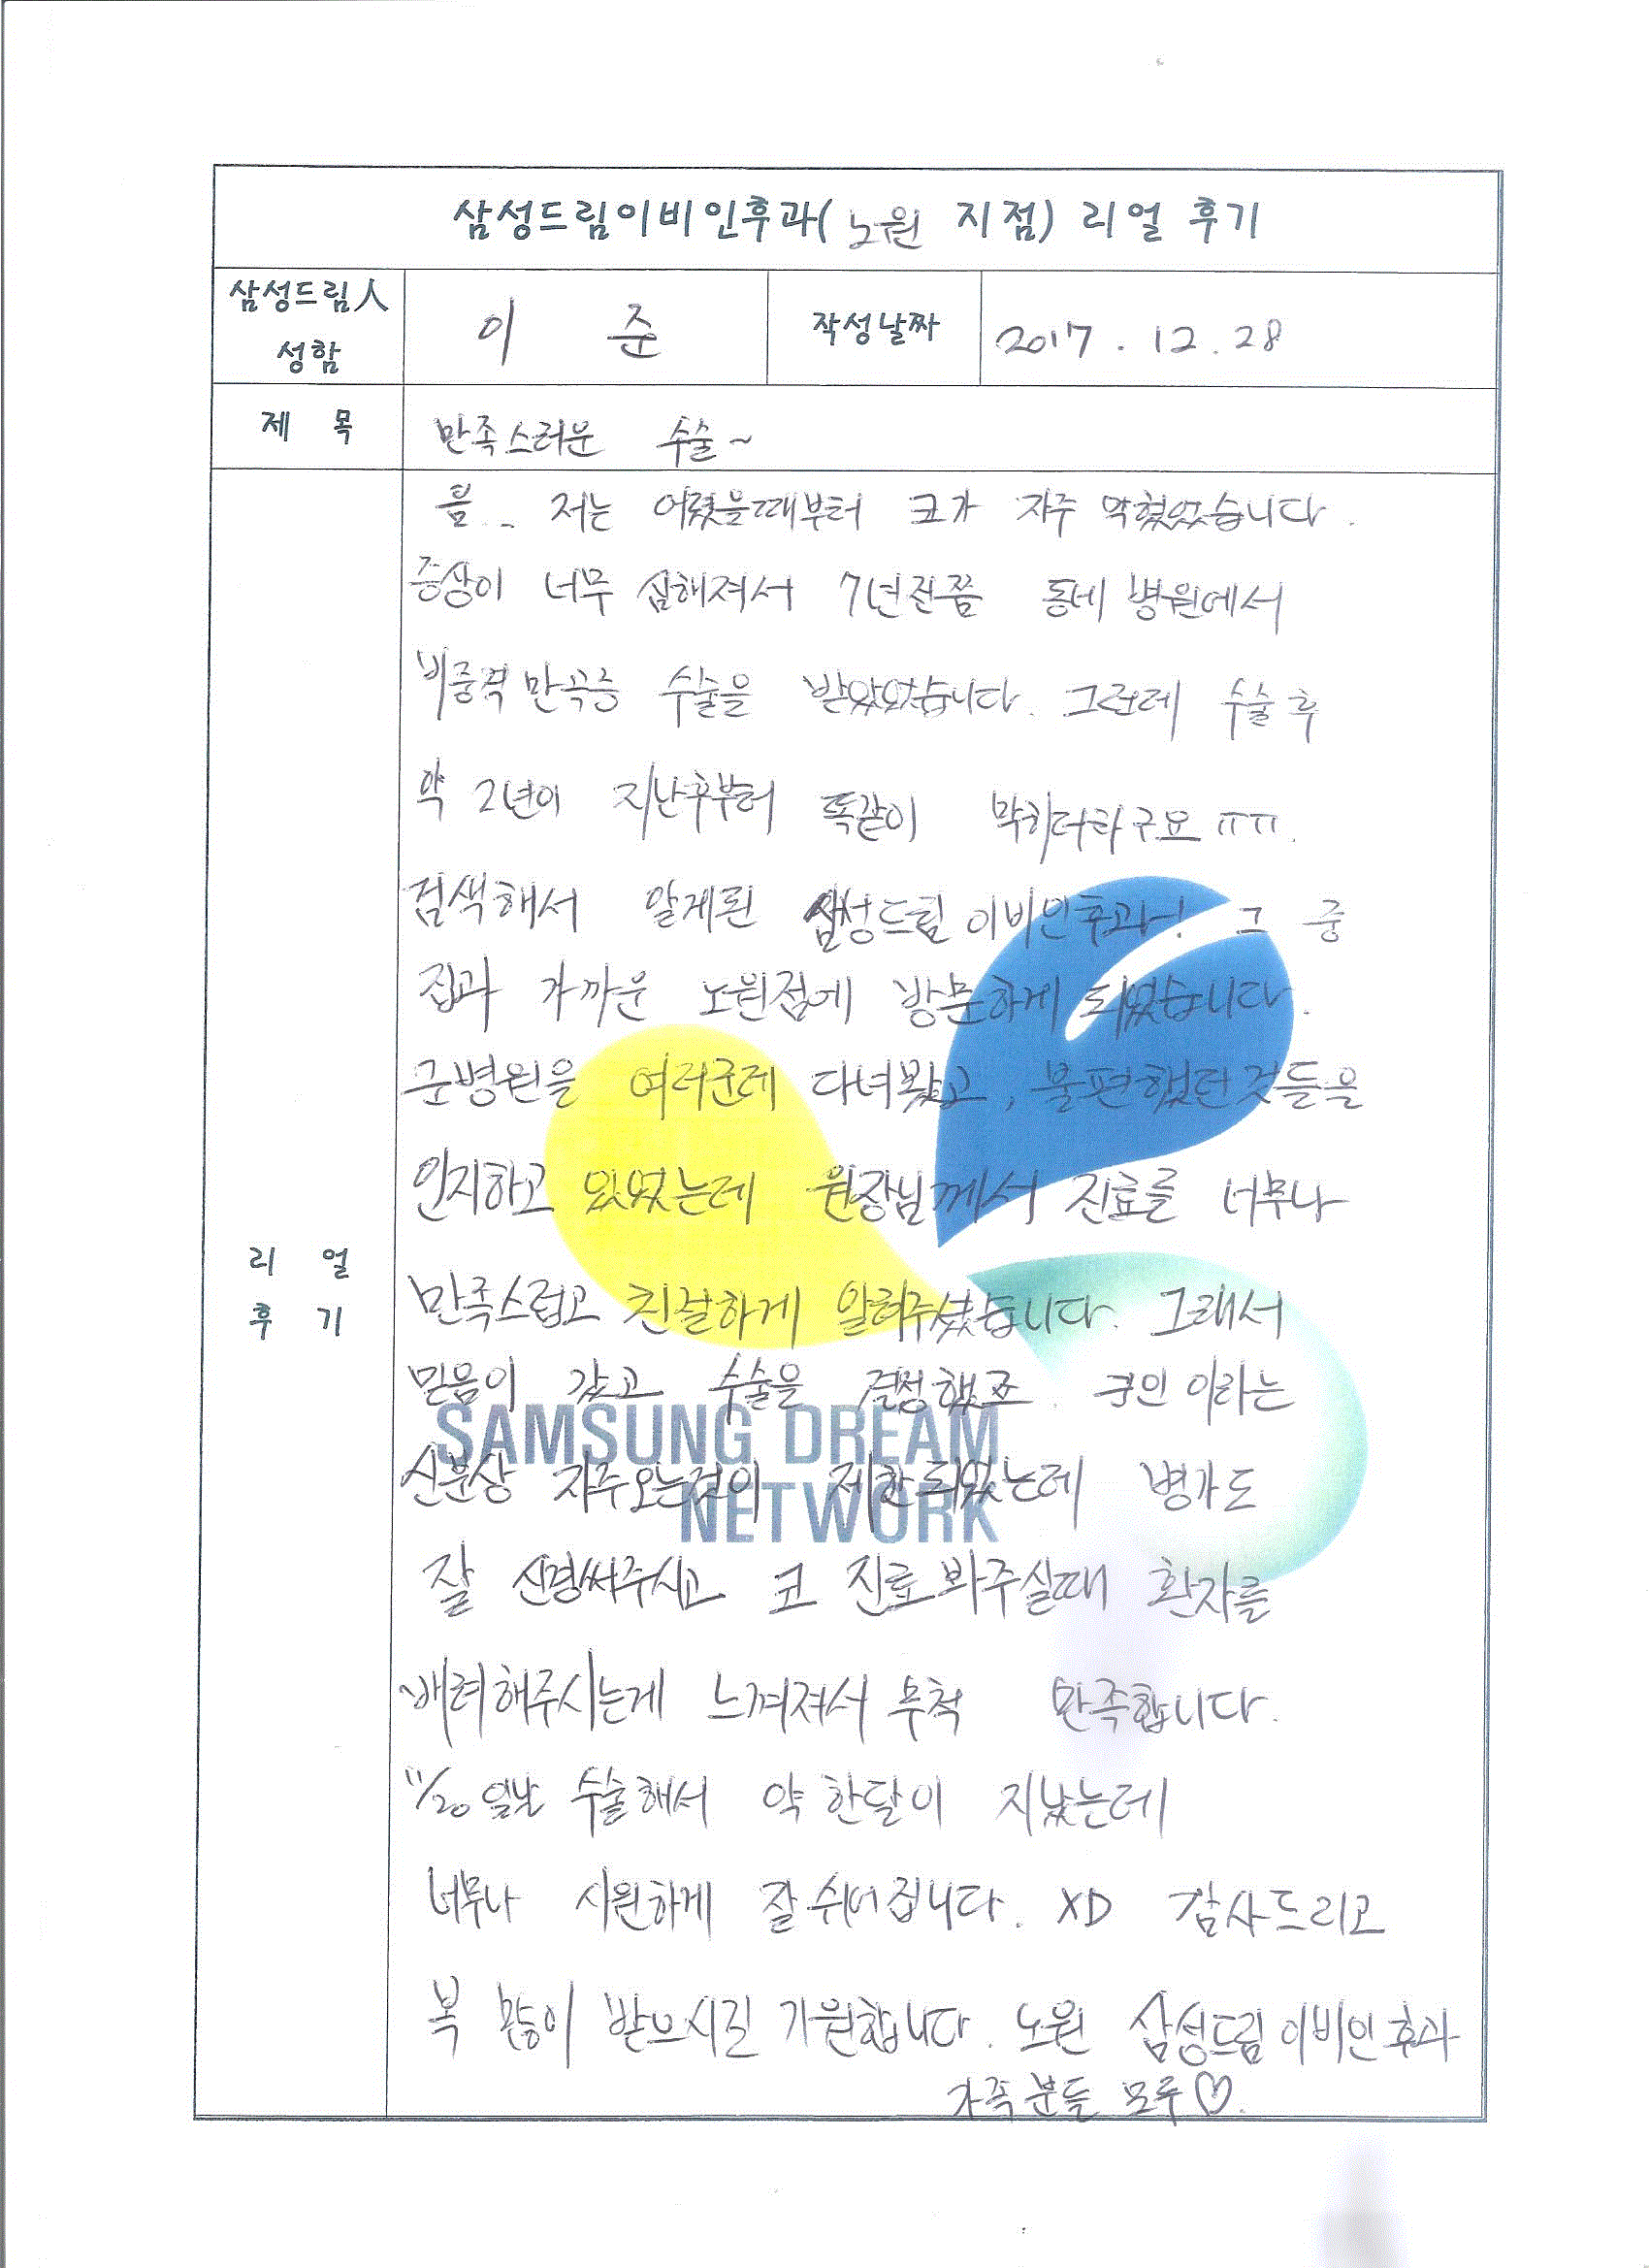 삼성드림이비인후과(노원 지점) 리얼 후기
삼성드림人 성함
이 준
작성날짜
2017. 12. 28
제 목
만족스러운 수술~
리 얼 후 기
흠.. 저는 어렸을때부터 코가 자주 막혔었습니다.
증상이 너무 심해져서 7년전쯤 동네 병원에서
비중격만곡증 수술을 받았었습니다. 그런데 수술 후
약 2년이 지난후부터 똑같이 막히더라구요 ㅠㅠ.
검색해서 알게된 삼성드림 이비인후과! 그 중
집과 가까운 노원점에 방문하게 되었습니다.
군병원을 여러군데 다녀봤고, 불편했던것들을
인지하고 있었는데 원장님께서 진료를 너무나
만족스럽고 친절하게 알려주셨습니다. 그래서
믿음이 갔고 수술을 결정했죠. 군인 이라는
SAMSUNG DREAM
신분상 자주오는것이 제한되었는데 병가도
NETWORK
잘 신경써주시고 코 진료봐주실때 환자를
배려해주시는게 느껴져서 무척 만족합니다.
11/20 일날 수술해서 약 한달이 지났는데
너무나 시원하게 잘 쉬어집니다. XD 감사드리고
복 많이 받으시길 기원합니다. 노원 삼성드림 이비인후과
가족분들 모두♡.